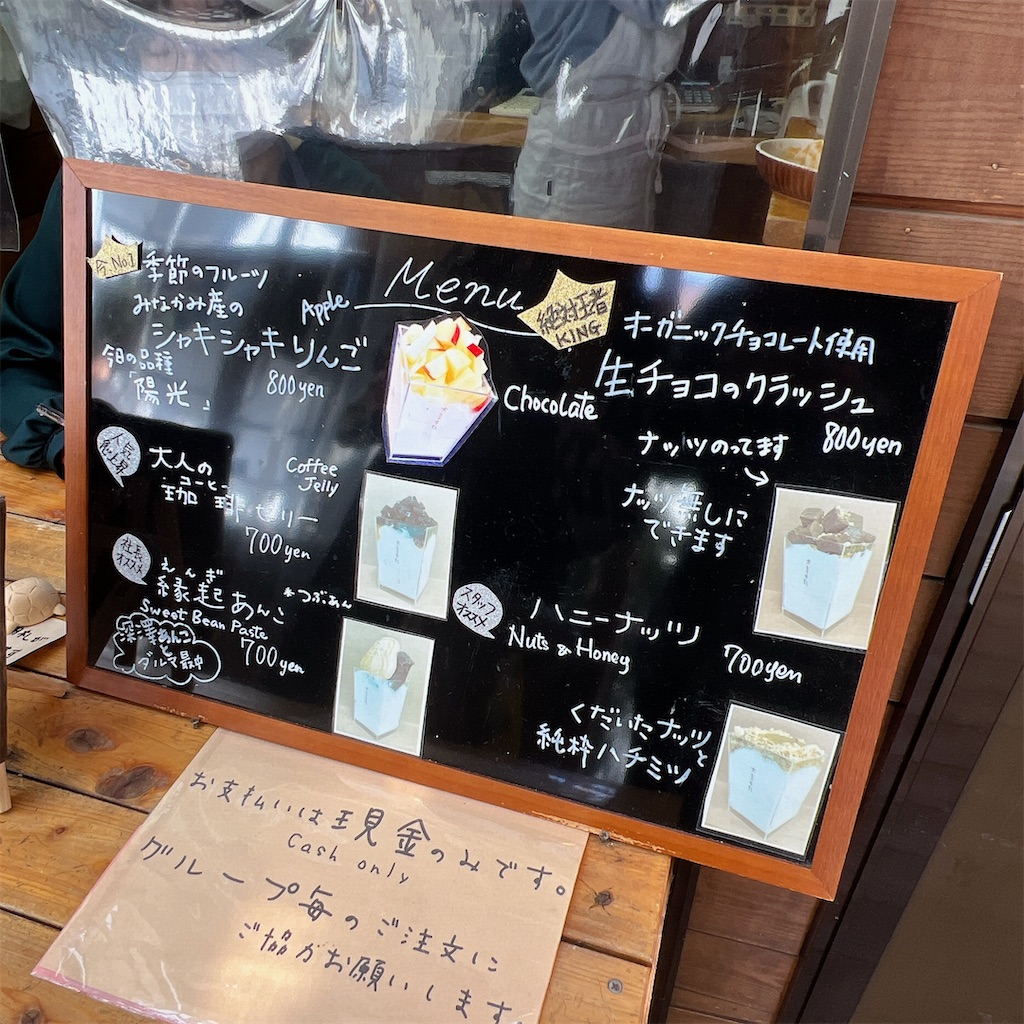 Menu
今.No1
季節のフルーツ
みなかみ産の
Apple
シャキシャキりんご
今日の品種
「陽光」
800yen
絶対王者
KING
オーガニックチョコレート使用
生チョコのクラッシュ
Chocolate
800yen
ナッツのってます
ナッツ無しに
できます
人気
急上昇
大人の
コーヒー
珈琲ゼリー
Coffee
Jelly
700yen
社長
オススメ
えんぎ
縁起あんこ
*つぶあん
Sweet Bean Paste
700yen
深澤あんこ
と
ダルマ最中
スタッフ
オススメ
ハニーナッツ
Nuts & Honey
700yen
くだいたナッツと
純粋ハチミツ
お支払いは現金のみです。
Cash only
グループ毎のご注文に
ご協力お願いします。